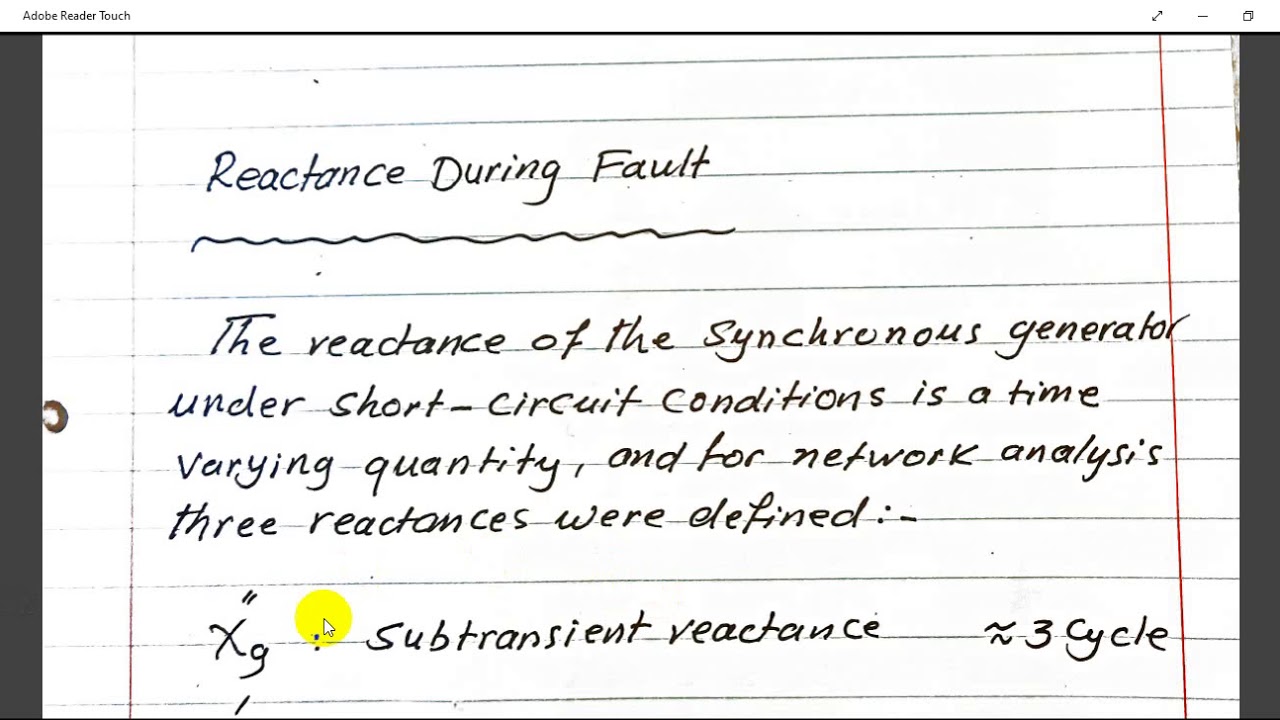 Adobe Reader Touch
Reactance During Fault
The reactance of the synchronous generator
under short-circuit conditions is a time
varying quantity, and for network analysis
three reactances were defined:-
Xg" : subtransient reactance ≈ 3 cycle
'